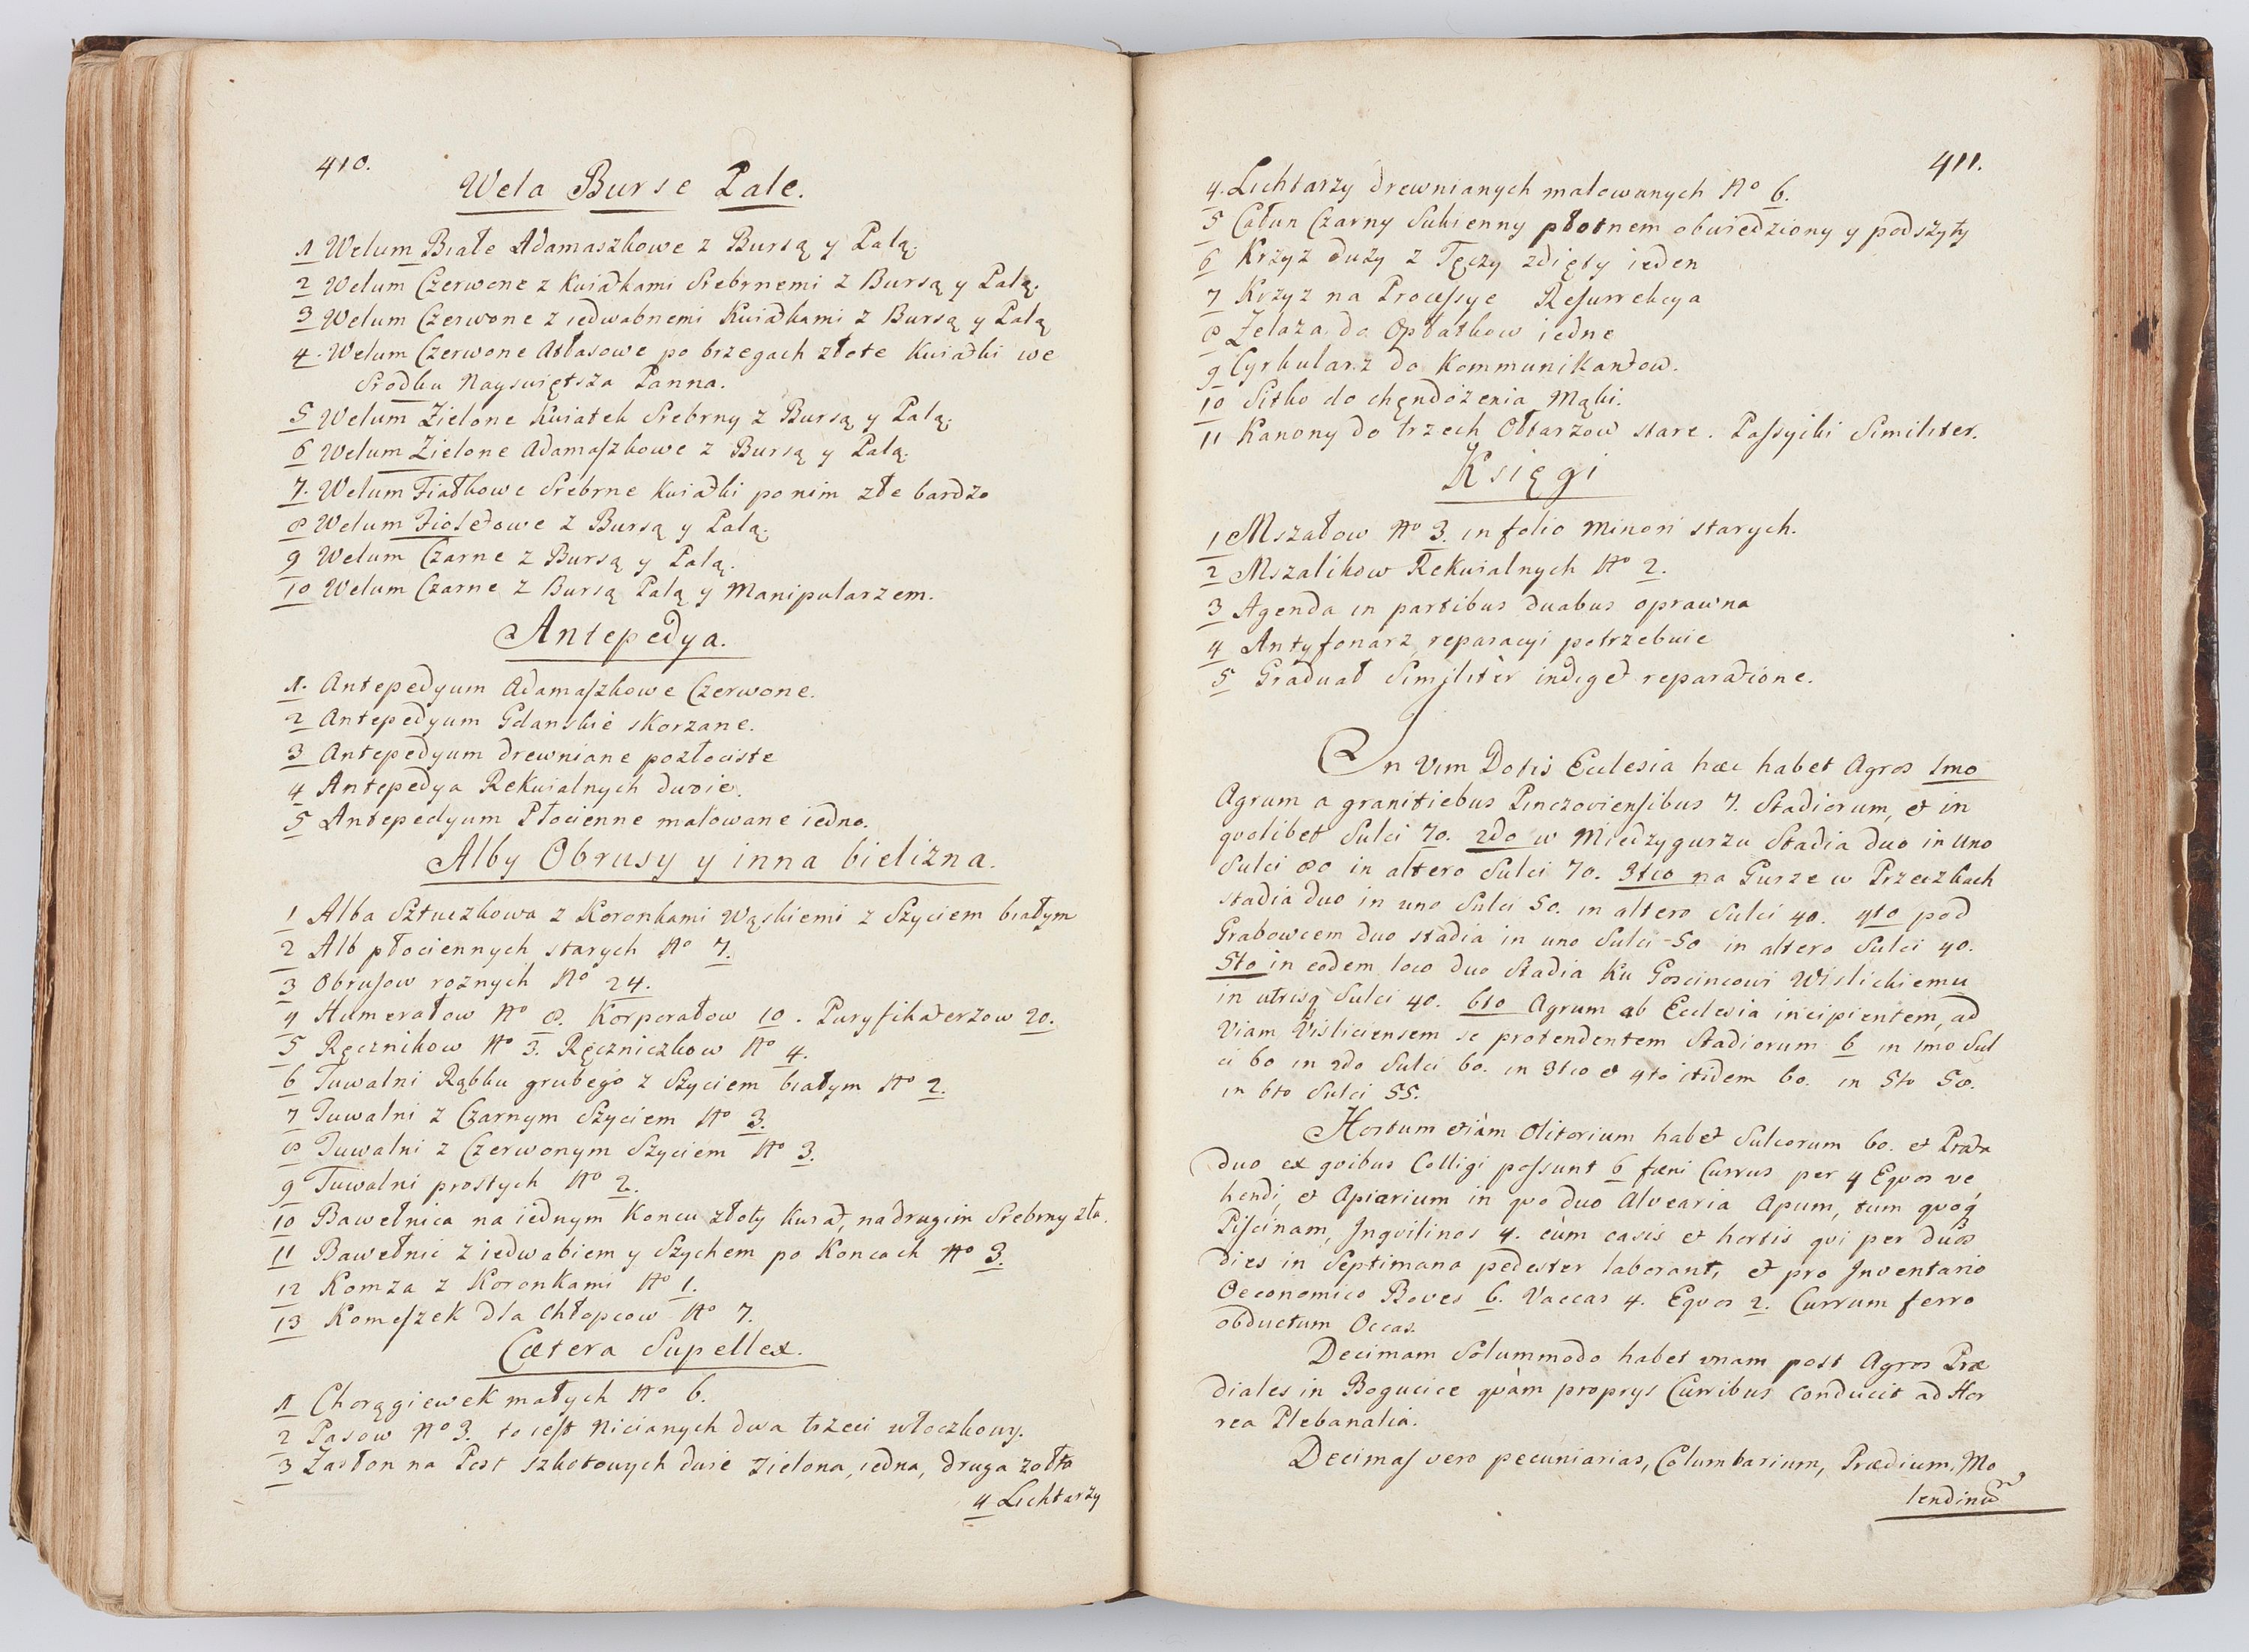 410.
Wela Burse Pale.
1 Welum Białe Adamaszkowe z Bursą y Palą.
2 Welum Czerwone z Kwiatkami Srebrnemi z Bursą y Palą.
3 Welum Czerwone z iedwabnemi Kwiatkami z Bursą y Palą
4. Welum Czerwone Atłasowe po brzegach złote Kwiatki we
Srodku Nayswiętsza Panna.
5 Welum Zielone Kwiatek Srebrny z Bursą y Palą.
6 Welum Zielone Adamaszkowe z Bursą y Palą.
7. Welum Fiałkowe Srebrne Kwiatki po nim złe bardzo
8 Welum Fioletowe z Bursą y Palą.
9 Welum Czarne z Bursą y Palą.
10 Welum Czarne z Bursą Palą y Manipularzem.
Antepedya.
1. Antepedyum Adamaszkowe Czerwone.
2 Antepedyum Gdanskie skorzane.
3 Antepedyum drewniane pozłociste
4 Antepedya Rekwialnych dwoie.
5 Antepedyum Płocienne malowane iedno.
Alby Obrusy y inna bielizna.
1 Alba Sztuczkowa z Koronkami Wąskiemi z Szyciem białym
2 Alb płociennych starych No 7.
3 Obrusow rożnych No 24.
4 Humerałow No 8. Korporałow 10. Puryfikaterzow 20.
5 Ręcznikow No 3. Ręczniczkow No 4.
6 Tuwalni Rąbku grubego z Szyciem białym No 2.
7 Tuwalni z Czarnym Szyciem No 3.
8 Tuwalni z Czerwonym Szyciem No 3.
9 Tuwalni prostych No 2.
10 Bawełnica na iednym Koncu złoty Kwiat, na drugim Srebrny zła.
11 Bawełnic z iedwabiem y Szychem po Koncach No 3.
12 Komza z Koronkami No 1.
13 Komeszek dla Chłopcow No 7.
Cætera Supellex.
1 Chorągiewek małych No 6.
2 Pasow No 3. to iest Nicianych dwa trzeci włoczkowy.
3 Zasłon na Post szkotowych dwie zielona, iedna, druga żołta
4 Lichtarzy
411.
4. Lichtarzy drewnianych malowanych No 6.
5 Całun Czarny Sukienny płotnem obwiedziony y podszyty
6 Krzyz duży z Tęczy zdięty ieden
7 Krzyz na Processye Resurrekcya
8 Żelaza do Opłatkow iedne
9 Cyrkularz do Kommunikantow.
10 Sitko do chędożenia Mąki.
11 Kanony do trzech Ołtarzow stare. Passyiki Similiter.
Księgi
1 Mszałow No 3. in folio minori starych.
2 Mszalikow Rekwialnych No 2.
3 Agenda in partibus duabus oprawna
4 Antyfonarz reparacyi potrzebuie
5 Graduał Similitèr indiget reparatione.
In Vim Dotis Ecclesia hæc habet Agros 1mo
Agrum a granitiebus Pinczoviensibus 7. Stadiorum, et in
qvolibet Sulci 70. 2do w Miedzygurzu Stadia duo in Uno
Sulci 80 in altero Sulci 70. 3tio na Gurze w Przeczkach
stadia duo in uno Sulci 50. in altero Sulci 40. 4to pod
Grabowcem duo stadia in uno Sulci 50 in altero Sulci 40.
5to in eodem loco duo Stadia Ku Goscincowi Wislickiemu
in utrisq Sulci 40. 6to Agrum ab Ecclesia incipientem, ad
Viam Visliciensem se protendentem Stadiorum 6 in 1mo Sul
ci 60 in 2do Sulci 60. in 3tio et 4to itidem 60. in 5to 58.
in 6to Sulci 55.
Hortum etiàm Olitorium habet Sulcorum 60. et Prata
duo ex qvibus Colligi possunt 6 fæni Currus per 4 Eqvos ve
hendi, et Apiarium in qvo duo Alvearia Apum, tum qvoq
Piscinam, Inqvilinos 4. cùm casis et hortis qvi per duos
dies in Septimana pedester laborant, et pro Inventario
Oeconomico Boves 6. Vaccas 4. Eqvos 2. Currum ferro
obductum Occas.
Decimam Solummodo habet unam post Agros Præ
diales in Bogucice qvàm proprys Curribus conducit ad Hor
rea Plebanalia.
Decimas vero pecuniarias, Columbarium, Prædium, Mo
lendinum